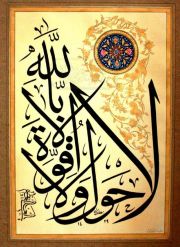 لا حول ولا قوة إلا بالله